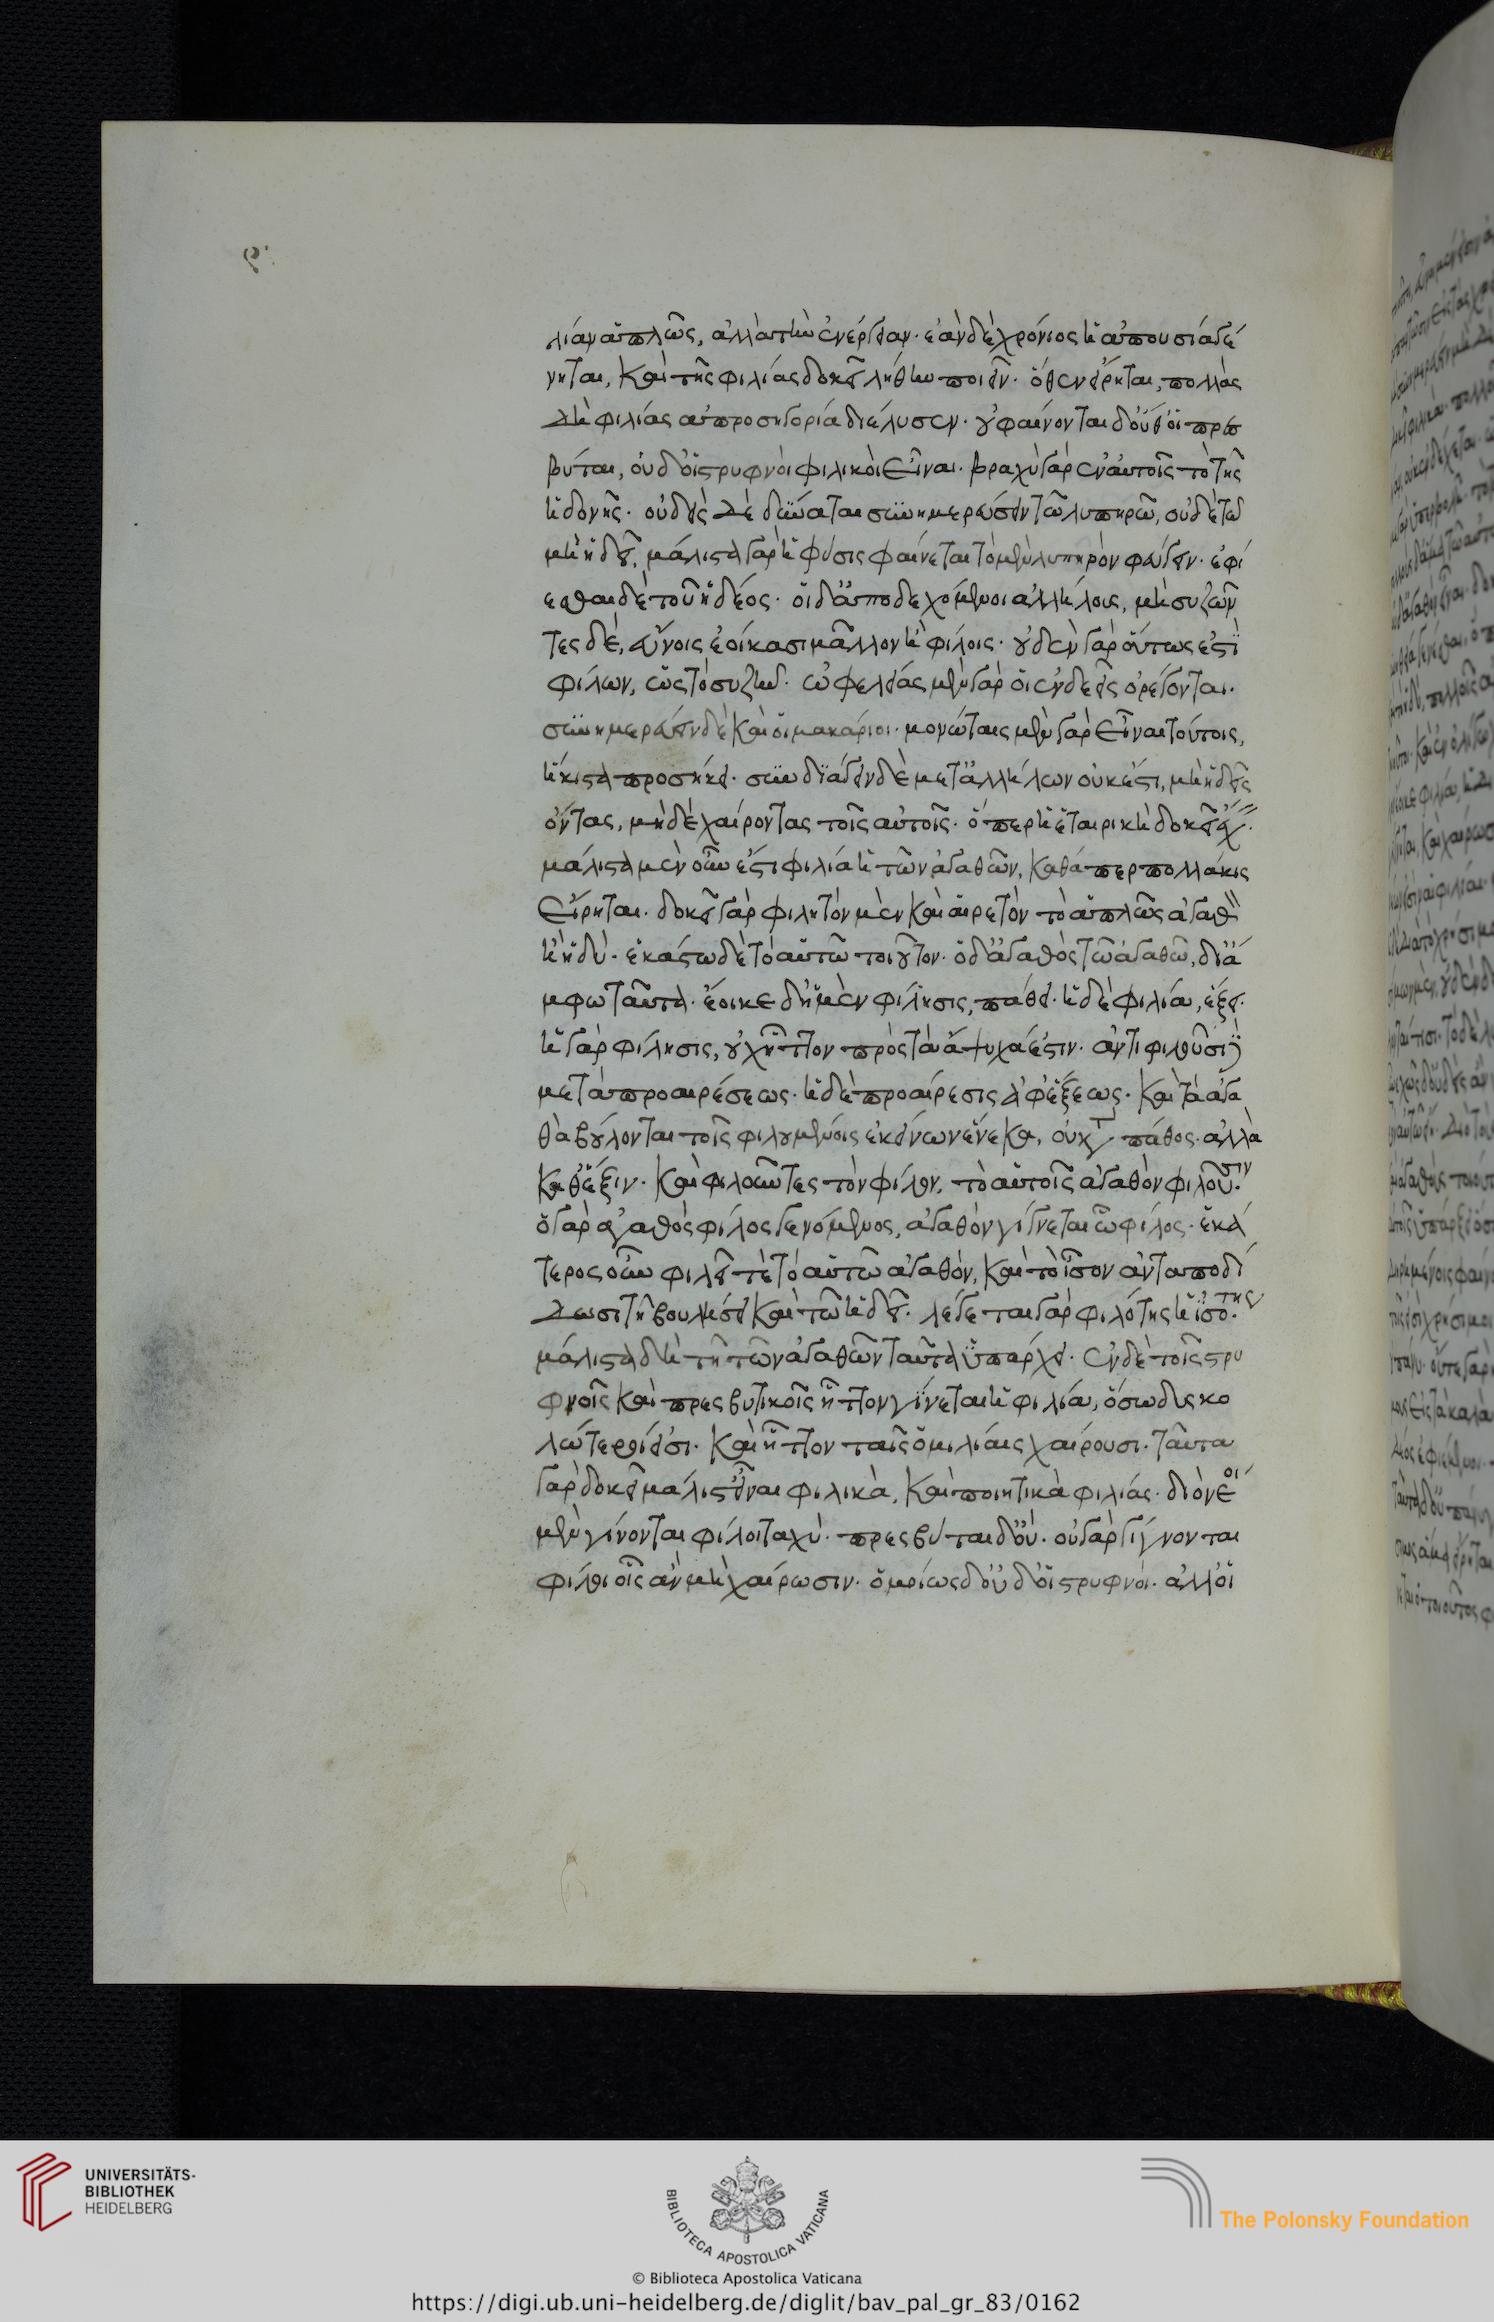 λίαν ἁπλῶς, ἀλλὰ τὴν ἐνέργειαν· ἐὰν δὲ χρόνιος ἡ ἀπουσία γέ
νηται, καὶ τῆς φιλίας δοκεῖ λήθην ποιεῖν· ὅθεν εἴρηται, πολλὰς
δὴ φιλίας ἀπροσηγορία διέλυσεν· οὐ φαίνονται δ' οὔθ' οἱ πρεσ
βύται, οὐδ' οἱ στρυφνοὶ φιλικοὶ εἶναι· βραχὺ γὰρ ἐν αὐτοῖς τὸ τῆς
ἡδονῆς· οὐδεὶς δὲ δύναται συνημερεύειν τῶ λυπηρῶ, οὐδὲ τῶ
μὴ ἡδεῖ, μάλιστα γὰρ ἡ φύσις φαίνεται τὸ μὲν λυπηρὸν φεύγειν· ἐφί
εσθαι δὲ τοῦ ἡδέος· οἱ δ' ἀποδεχόμενοι ἀλλήλους, μὴ συζῶν
τες δὲ, εὔνοις ἐοίκασι μᾶλλον ἢ φίλοις· οὐδὲν γὰρ οὕτως ἐστὶ
φίλων, ὡς τὸ συζῆν· ὠφελείας μὲν γὰρ οἱ ἐνδεεῖς ὀρέγονται·
συνημερεύειν δὲ καὶ οἱ μακάριοι· μονώταις μὲν γὰρ εἶναι τούτοις,
ἥκιστα προσήκει· συνδιάγειν δὲ μετ' ἀλλήλων οὐκ ἔστι, μὴ ἡδεῖς
ὄντας, μηδὲ χαίροντας τοῖς αὐτοῖς· ὅπερ ἡ ἑταιρικὴ δοκεῖ ἔχ·
μάλιστα μὲν οὖν ἐστι φιλία ἡ τῶν ἀγαθῶν, καθάπερ πολλάκις
εἴρηται· δοκεῖ γὰρ φιλητὸν μὲν καὶ αἱρετὸν τὸ ἁπλῶς ἀγαθὸν
ἢ ἡδύ· ἑκάστω δὲ τὸ αὑτῶ τοιοῦτον· ὁ δ' ἀγαθὸς τῶ ἀγαθῶ, δι' ἄ
μφω ταῦτα· ἔοικε δ' ἡ μὲν φίλησις, πάθει· ἡ δὲ φιλία, ἕξει·
ἡ γὰρ φίλησις, οὐχ ἧττον πρὸς τὰ ἄψυχά ἐστιν· ἀντιφιλοῦσι δὲ
μετὰ προαιρέσεως· ἡ δὲ προαίρεσις ἀφ' ἕξεως· καὶ τἀγα
θὰ βούλονται τοῖς φιλουμένοις ἐκείνων ἕνεκα, οὐ κατὰ πάθος· ἀλλὰ
καθ' ἕξιν· καὶ φιλοῦντες τὸν φίλον, τὸ αὑτοῖς ἀγαθὸν φιλοῦσιν·
ὁ γὰρ ἀγαθὸς φίλος γενόμενος, ἀγαθὸν γίγνεται ὧ φίλος· ἑκά
τερος οὖν φιλεῖ τὲ τὸ αὑτῶ ἀγαθόν, καὶ τὸ ἴσον ἀνταποδί
δωσι τῆ βουλήσει καὶ τῶ ἡδεῖ· λέγεται γὰρ φιλότης ἡ ἰσότης·
μάλιστα δὴ τῆ τῶν ἀγαθῶν ταῦτα ὑπάρχει· ἐν δὲ τοῖς στρυ
φνοῖς καὶ πρεσβυτικοῖς ἧττον γίνεται ἡ φιλία, ὅσω δυσκο
λώτεροί εἰσι· καὶ ἧττον ταῖς ὁμιλίαις χαίρουσι· ταῦτα
γὰρ δοκεῖ μάλιστ' εἶναι φιλικὰ, καὶ ποιητικὰ φιλίας· διὸ νέοι
μὲν γίνονται φίλοι ταχύ· πρεσβύται δ' οὔ· οὐ γὰρ γίγνονται
φίλοι οἷς ἂν μὴ χαίρωσιν· ὁμοίως δ' οὐδ' οἱ στρυφνοί· ἀλλ' οἱ
UNIVERSITÄTS-
BIBLIOTHEK
HEIDELBERG
BIBLIOTECA APOSTOLICA VATICANA
The Polonsky Foundation
© Biblioteca Apostolica Vaticana
https://digi.ub.uni-heidelberg.de/diglit/bav_pal_gr_83/0162